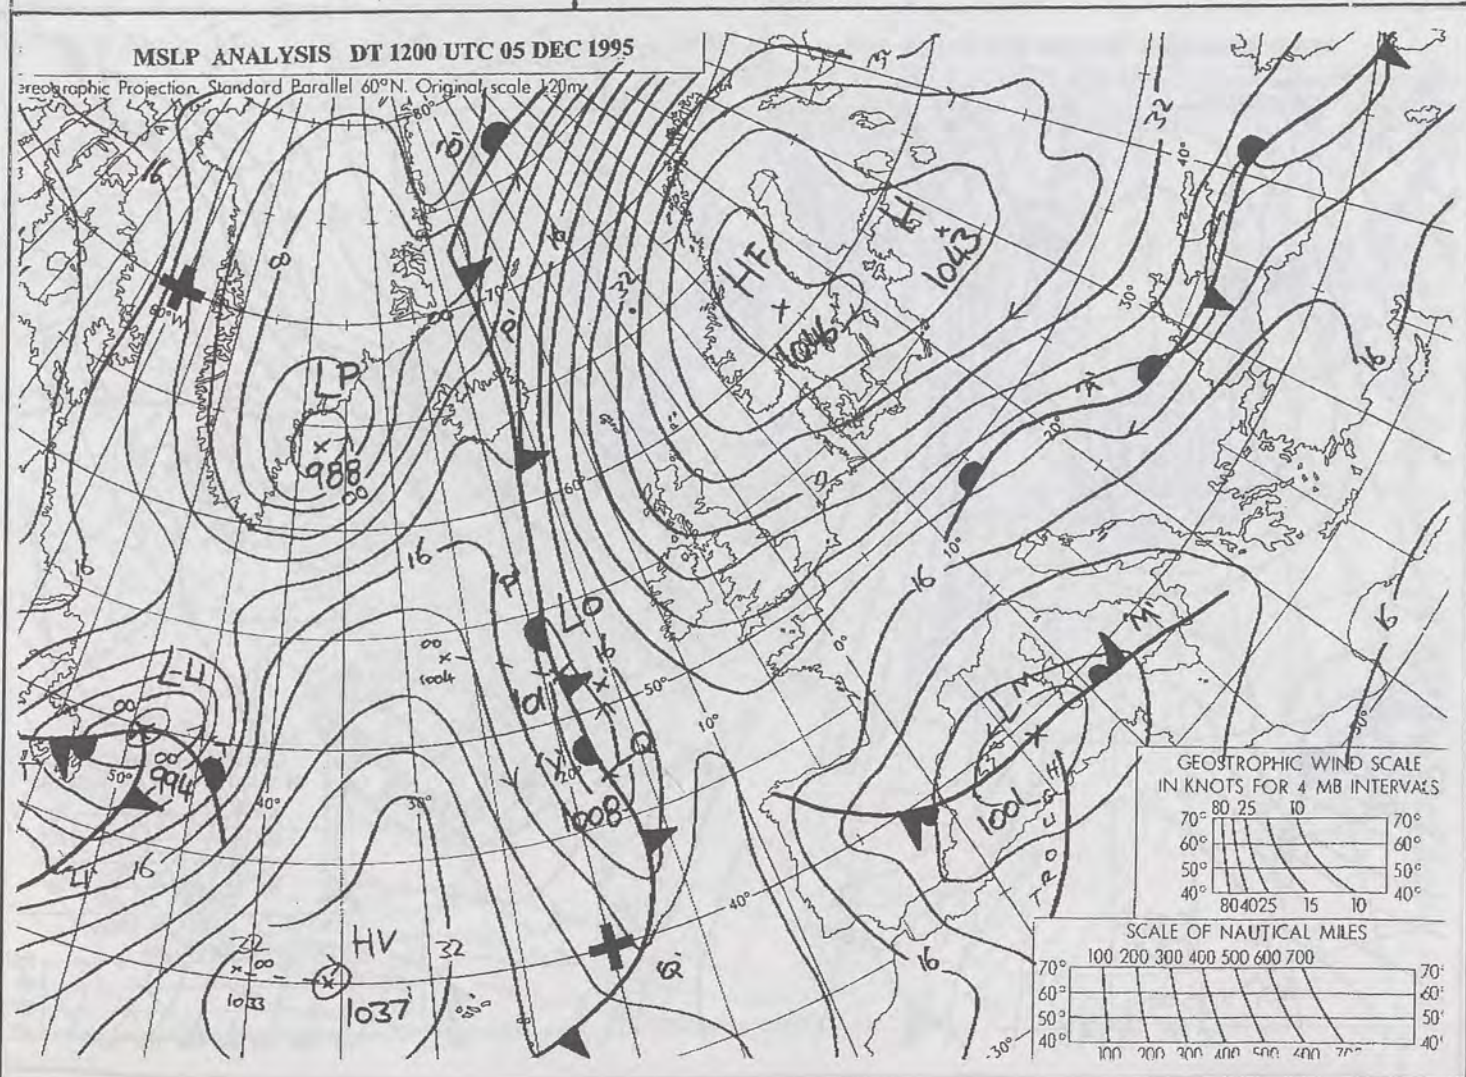 MSLP ANALYSIS DT 1200 UTC 05 DEC 1995
ereographic Projection. Standard Parallel 60°N. Original scale 1:20m
80°
16
8
00
80°W
70°
32
HF
1046
H
1043
32
40°
30°
20°
10°
0°
LP
988
00
60°
16
16
16
16
16
LO
16
101
'X'
50°
10°
00
1004
L4
00
00
994
50°
40°
30°
20°
16
Q
1008
40°
LM
1001
'M'
TROUGH
32
00
1033
HV
1037
32
'Q'
16
30°
GEOSTROPHIC WIND SCALE
IN KNOTS FOR 4 MB INTERVALS
80 25 10
70° 70°
60° 60°
50° 50°
40° 40°
80 40 25 15 10
SCALE OF NAUTICAL MILES
100 200 300 400 500 600 700
70° 70°
60° 60°
50° 50°
40° 40°
100 200 300 400 500 600